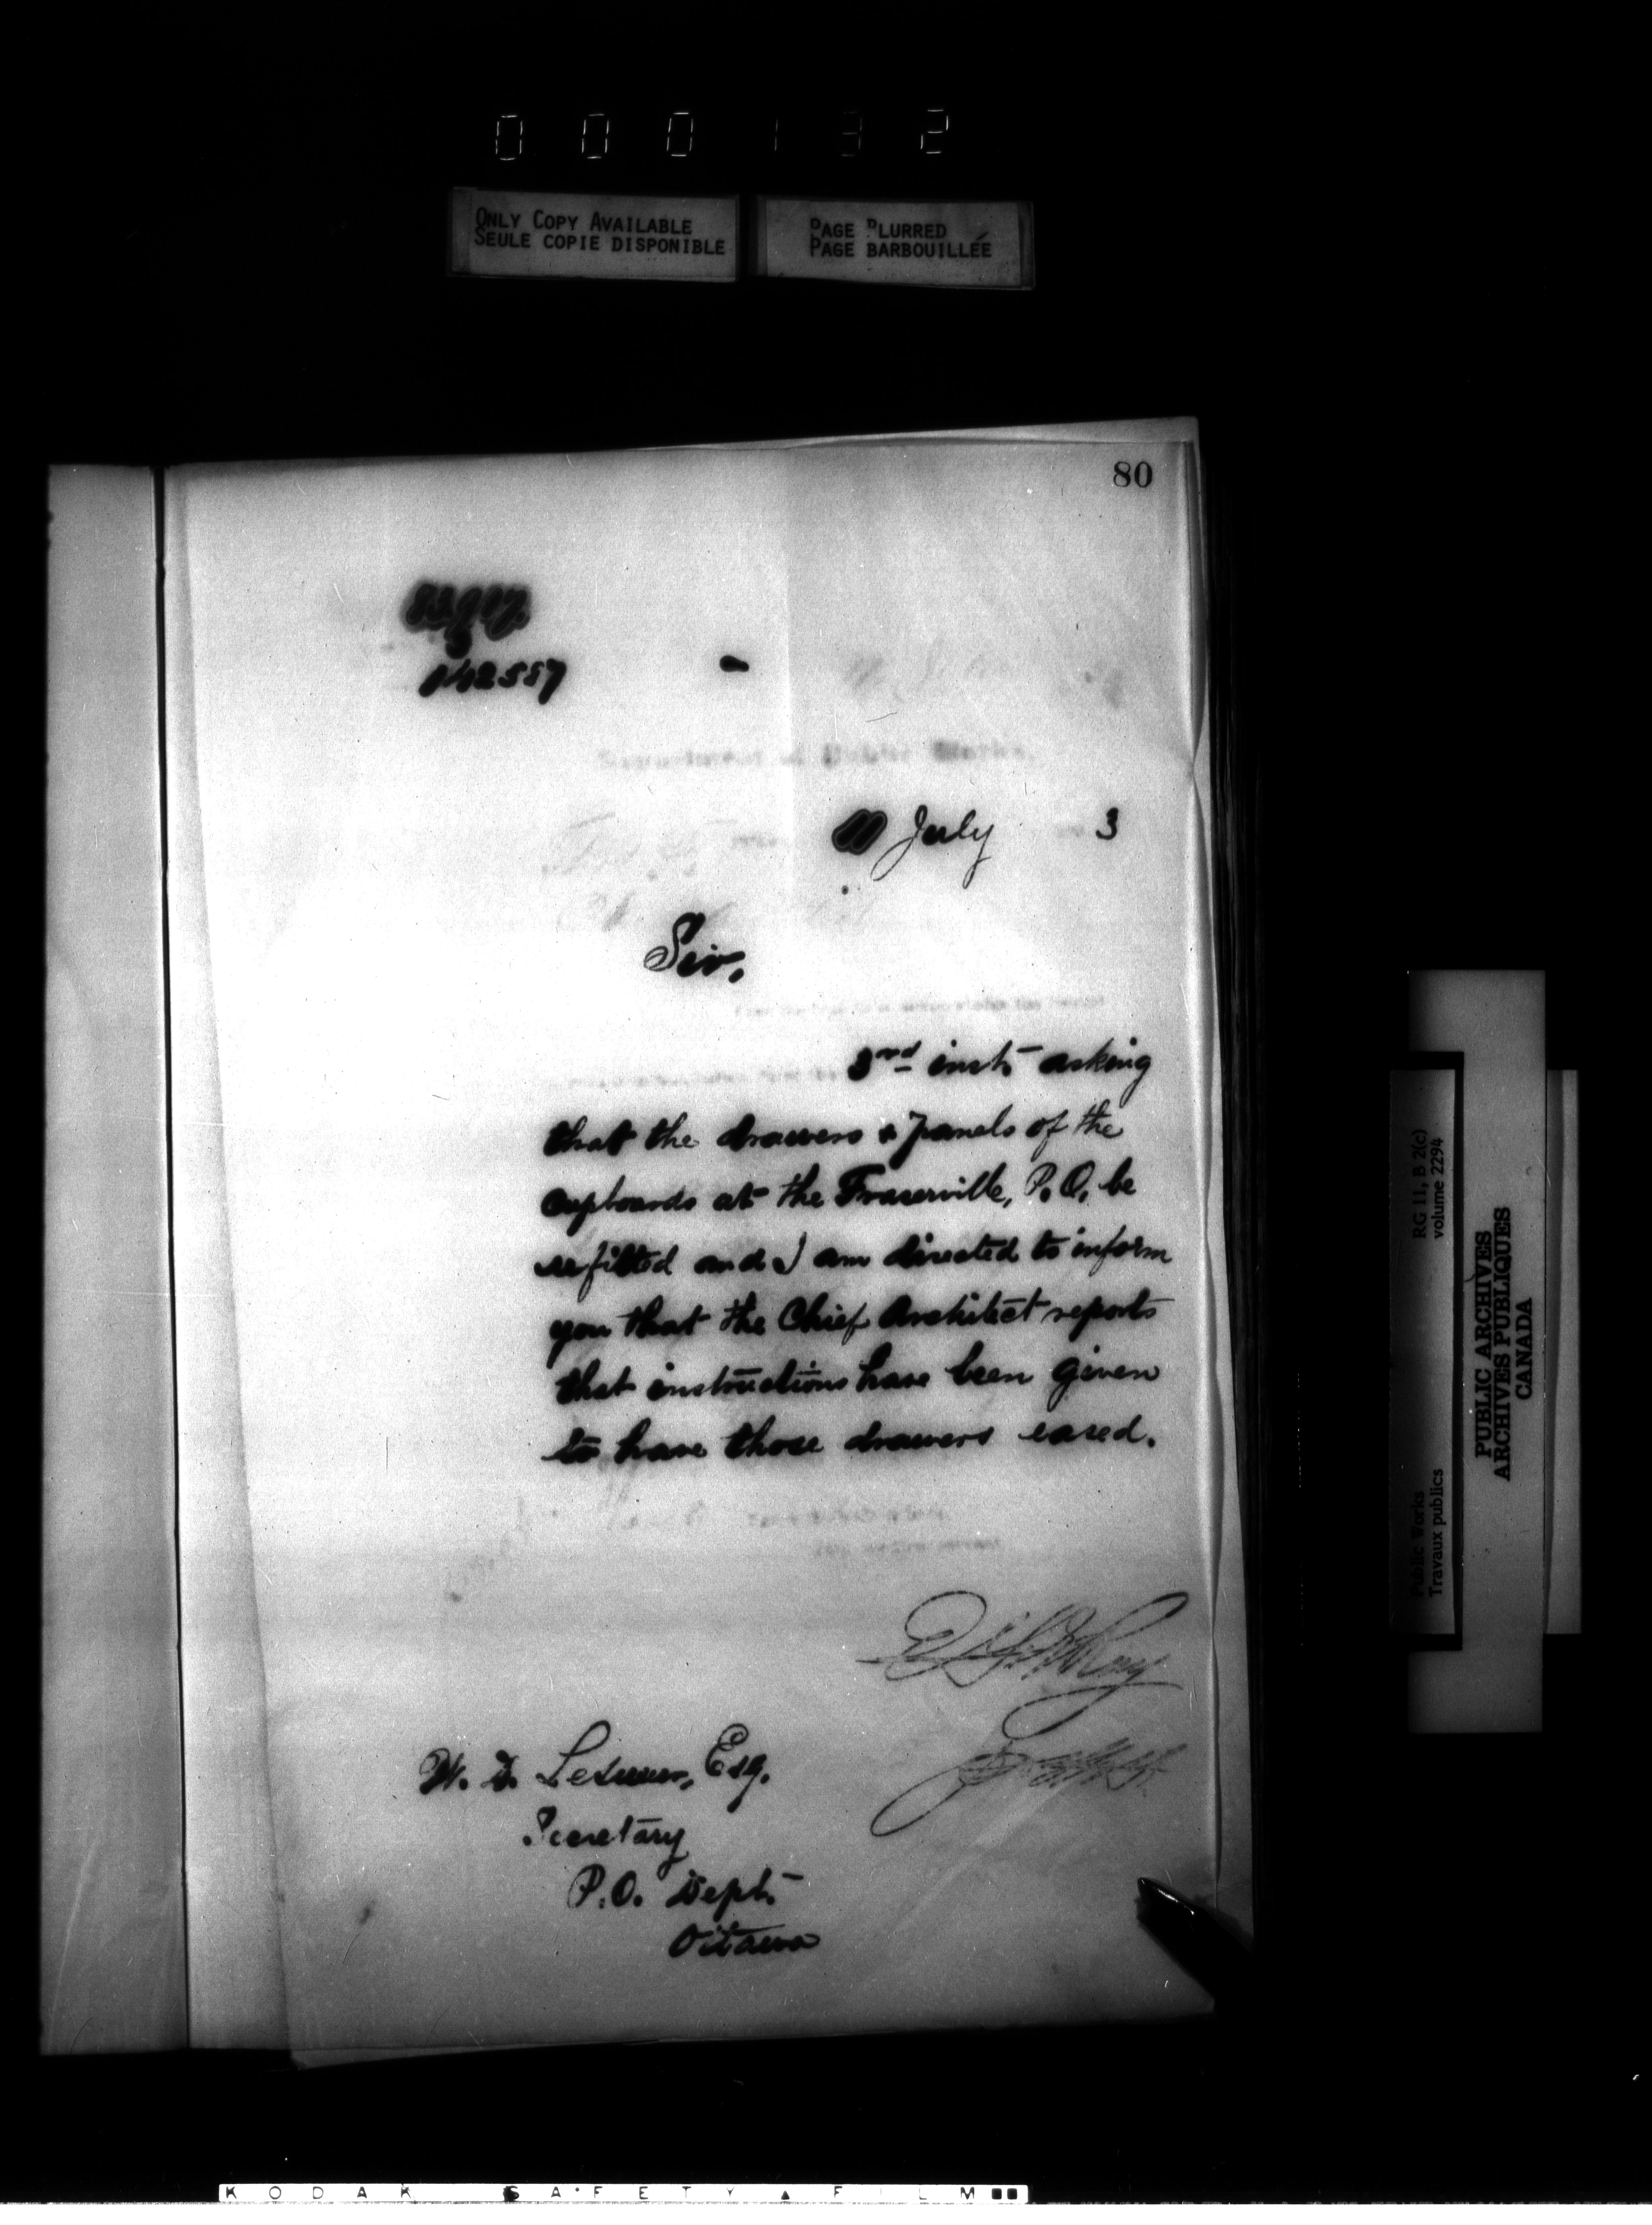 000132
ONLY COPY AVAILABLE
SEULE COPIE DISPONIBLE
PAGE BLURRED
PAGE BARBOUILLÉE
80
142557
July 3
Sir,
3rd inst. asking
that the drawers & panels of the
cupboards at the Fraserville, P.O. be
refitted and I am directed to inform
you that the Chief Architect reports
that instructions have been given
to have those drawers eased.
W. D. LeSueur, Esq.
Secretary
P.O. Dept.
Ottawa
RG 11, B 2(c)
volume 2294
Public Works
Travaux publics
PUBLIC ARCHIVES
ARCHIVES PUBLIQUES
CANADA
KODAK SAFETY FILM